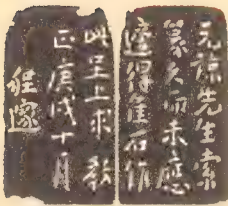 元涼先生索
篆久而未應
邃得舊石作
此呈上求教
正庚戌十月
程邃